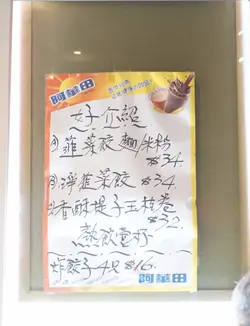 阿華田
好介紹
①韮菜餃麵/米粉
$34.
②淨韮菜餃 $34.
③香酥提子玉桂卷
$32.
熱飲壹杯
炸餃子4只 $16.
阿華田